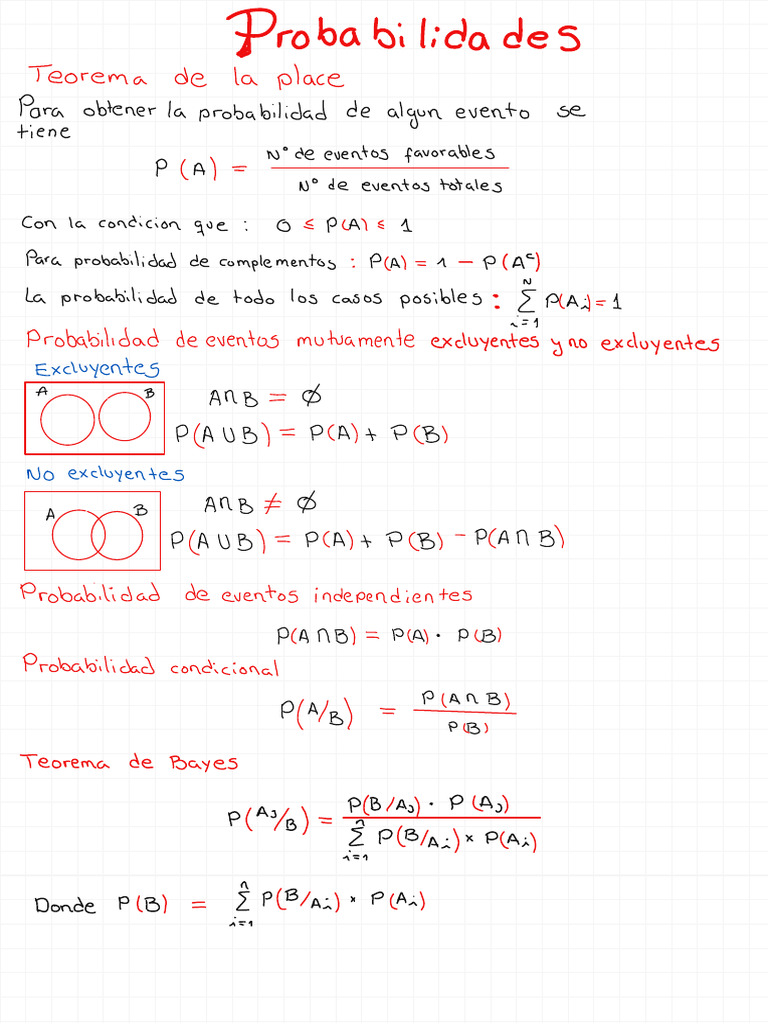 Probabilidades
Teorema de la place
Para obtener la probabilidad de algun evento se
tiene
P(A) = N° de eventos favorables / N° de eventos totales
Con la condicion que : 0 ≤ P(A) ≤ 1
Para probabilidad de complementos : P(A) = 1 - P(Aᶜ)
La probabilidad de todo los casos posibles : N Σ i=1 P(Ai) = 1
Probabilidad de eventos mutuamente excluyentes y no excluyentes
Excluyentes
A B
A∩B = ∅
P(A∪B) = P(A) + P(B)
No excluyentes
A B
A∩B ≠ ∅
P(A∪B) = P(A) + P(B) - P(A∩B)
Probabilidad de eventos independientes
P(A∩B) = P(A) · P(B)
Probabilidad condicional
P(A/B) = P(A∩B) / P(B)
Teorema de Bayes
P(AJ/B) = P(B/AJ) · P(AJ) / n Σ i=1 P(B/Ai) × P(Ai)
Donde P(B) = n Σ i=1 P(B/Ai) × P(Ai)